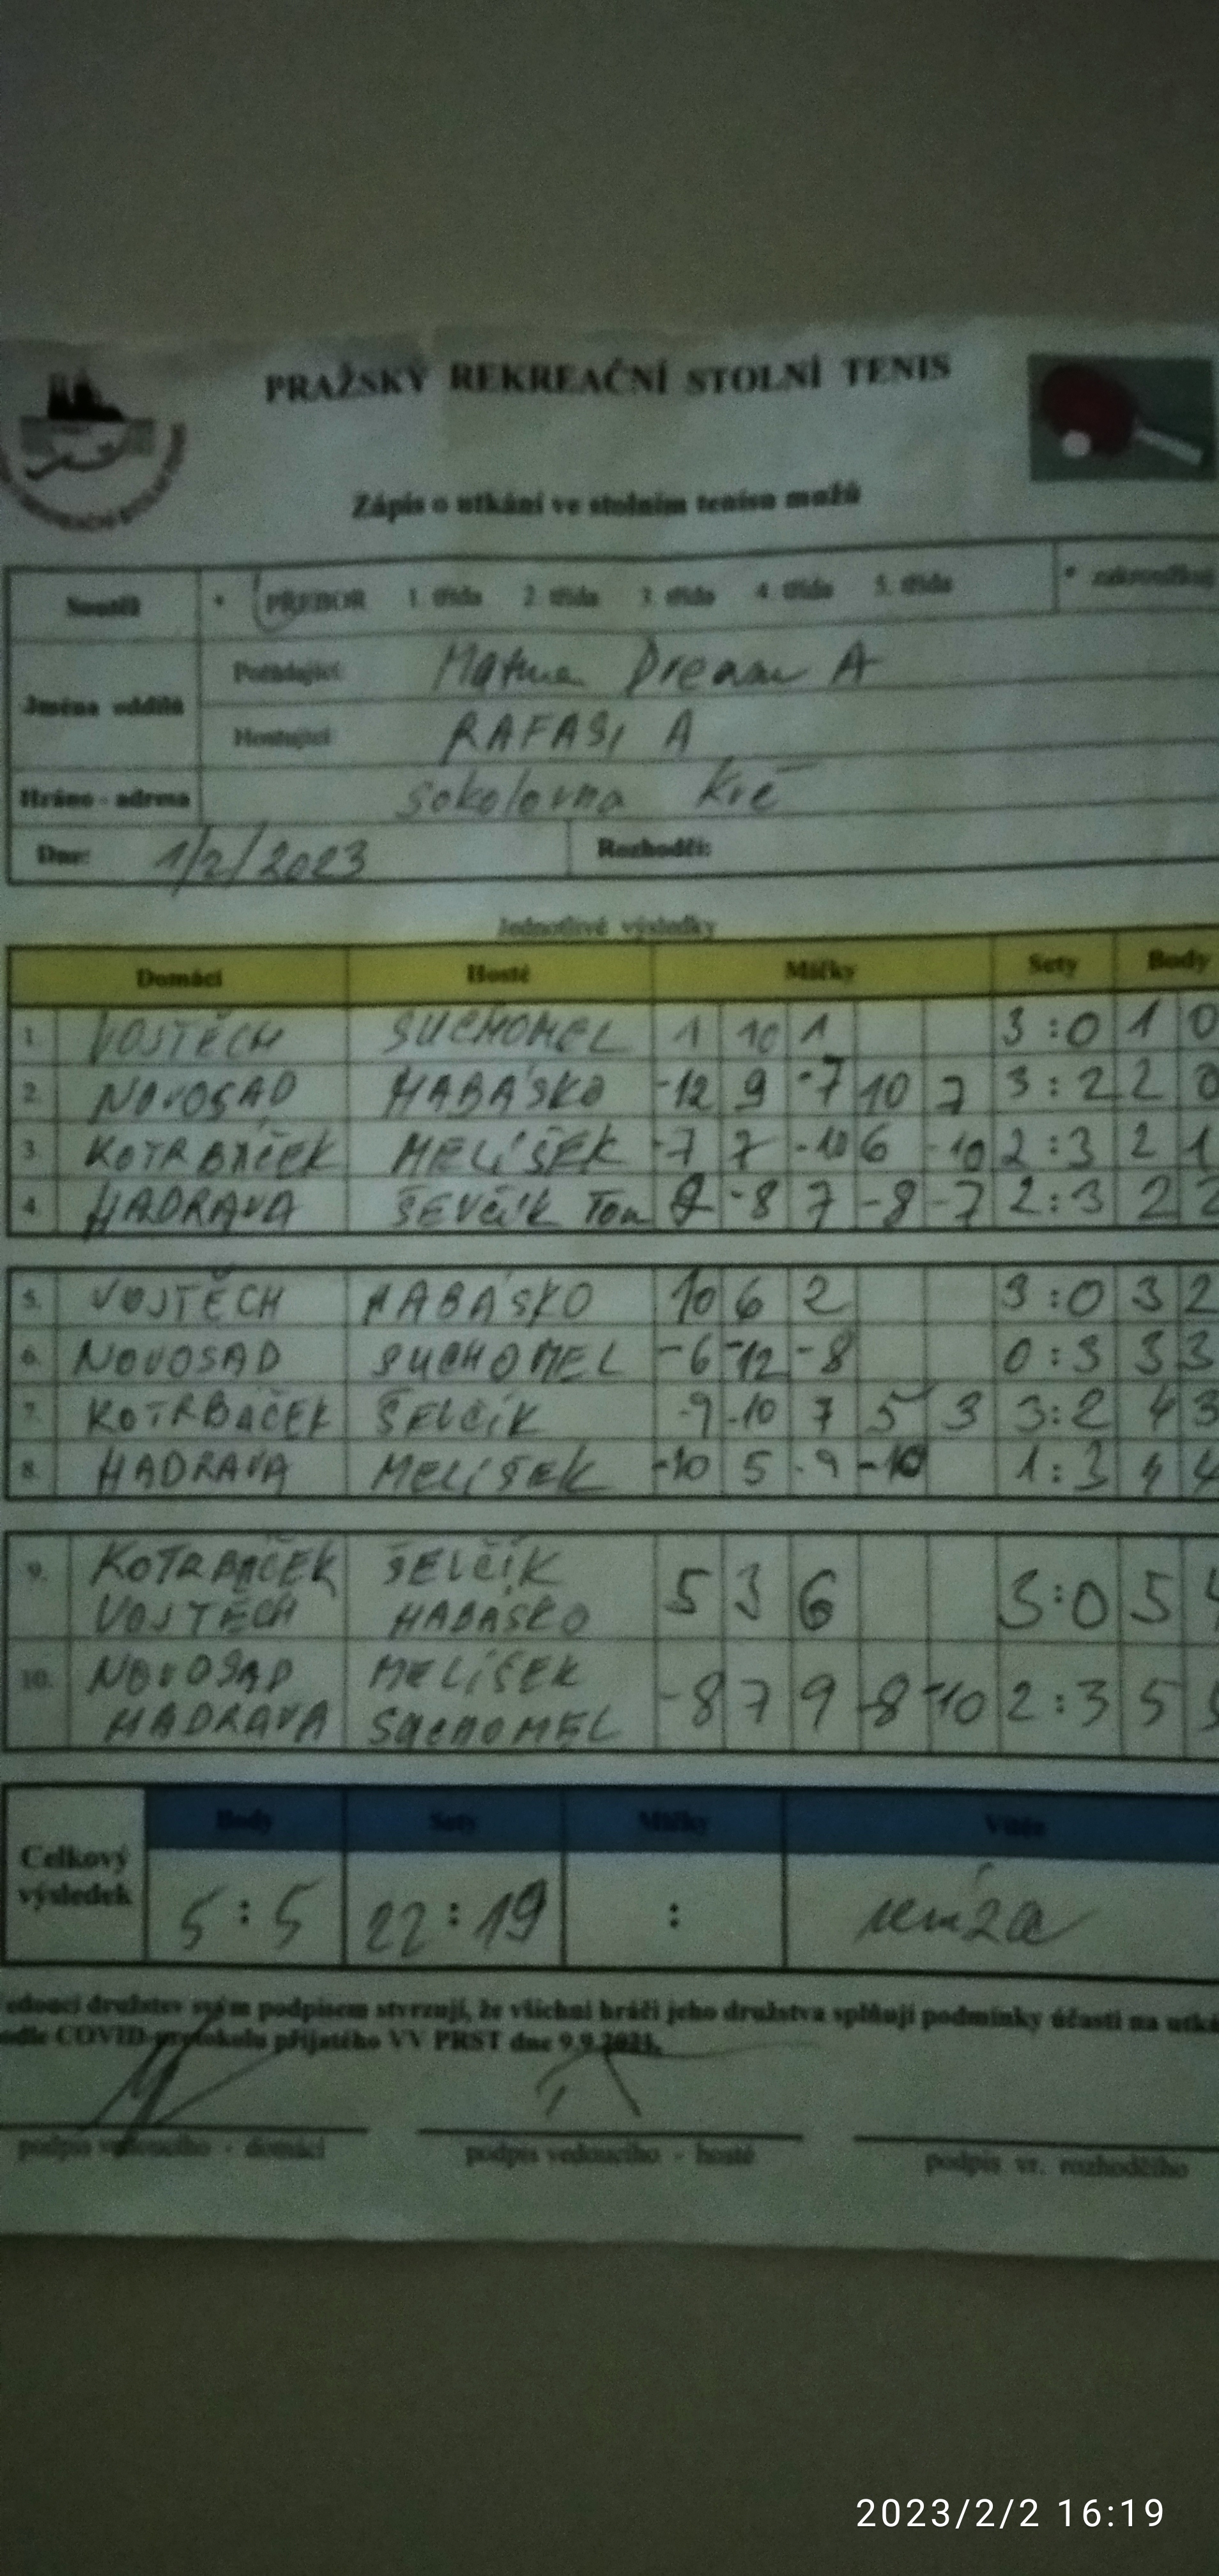 PRAŽSKÝ REKREAČNÍ STOLNÍ TENIS
Zápis o utkání ve stolním tenise mužů
Soutěž * PŘEBOR 1. třída 2. třída 3. třída 4. třída 5. třída *
Jména oddílů
Pořádající: Dream A
Hostující: RAFASI A
Hráno - adresa sokolovna Krč
Dne: 1/2/2023 Rozhodčí:
Jednotlivé výsledky
Domácí Hosté Míčky Sety Body
1. VOJTĚCH SUCHOMEL 1 10 1 3:0 1 0
2. NOVOSAD HABÁSKO -12 9 -7 10 7 3:2 2 0
3. KOTRBÁČEK MELÍŠEK -7 7 -10 6 -10 2:3 2 1
4. HADRAVA ŠEVČÍK Tom -8 7 -8 -7 2:3 2 2
5. VOJTĚCH HABÁSKO 10 6 2 3:0 3 2
6. NOVOSAD SUCHOMEL -6 -12 -8 0:3 3 3
7. KOTRBÁČEK ŠEVČÍK -9 -10 7 5 3 3:2 4 3
8. HADRAVA MELÍŠEK -10 5 -9 -10 1:3 4 4
9. KOTRBÁČEK ŠEVČÍK 5 3 6 3:0 5 4
VOJTĚCH HABÁSKO
10. NOVOSAD MELÍŠEK -8 7 9 -8 -10 2:3 5 5
HADRAVA SUCHOMEL
Celkový výsledek
Body Sety Míčky Vítěz
5:5 22:19 : remíza
edoucí družstev svým podpisem stvrzují, že všichni hráči jeho družstva splňují podmínky účasti na utká
odle COVID-protokolu přijatého VV PRST dne 9.9.2021.
podpis vedoucího - domácí podpis vedoucího - hosté podpis vr. rozhodčího
2023/2/2 16:19